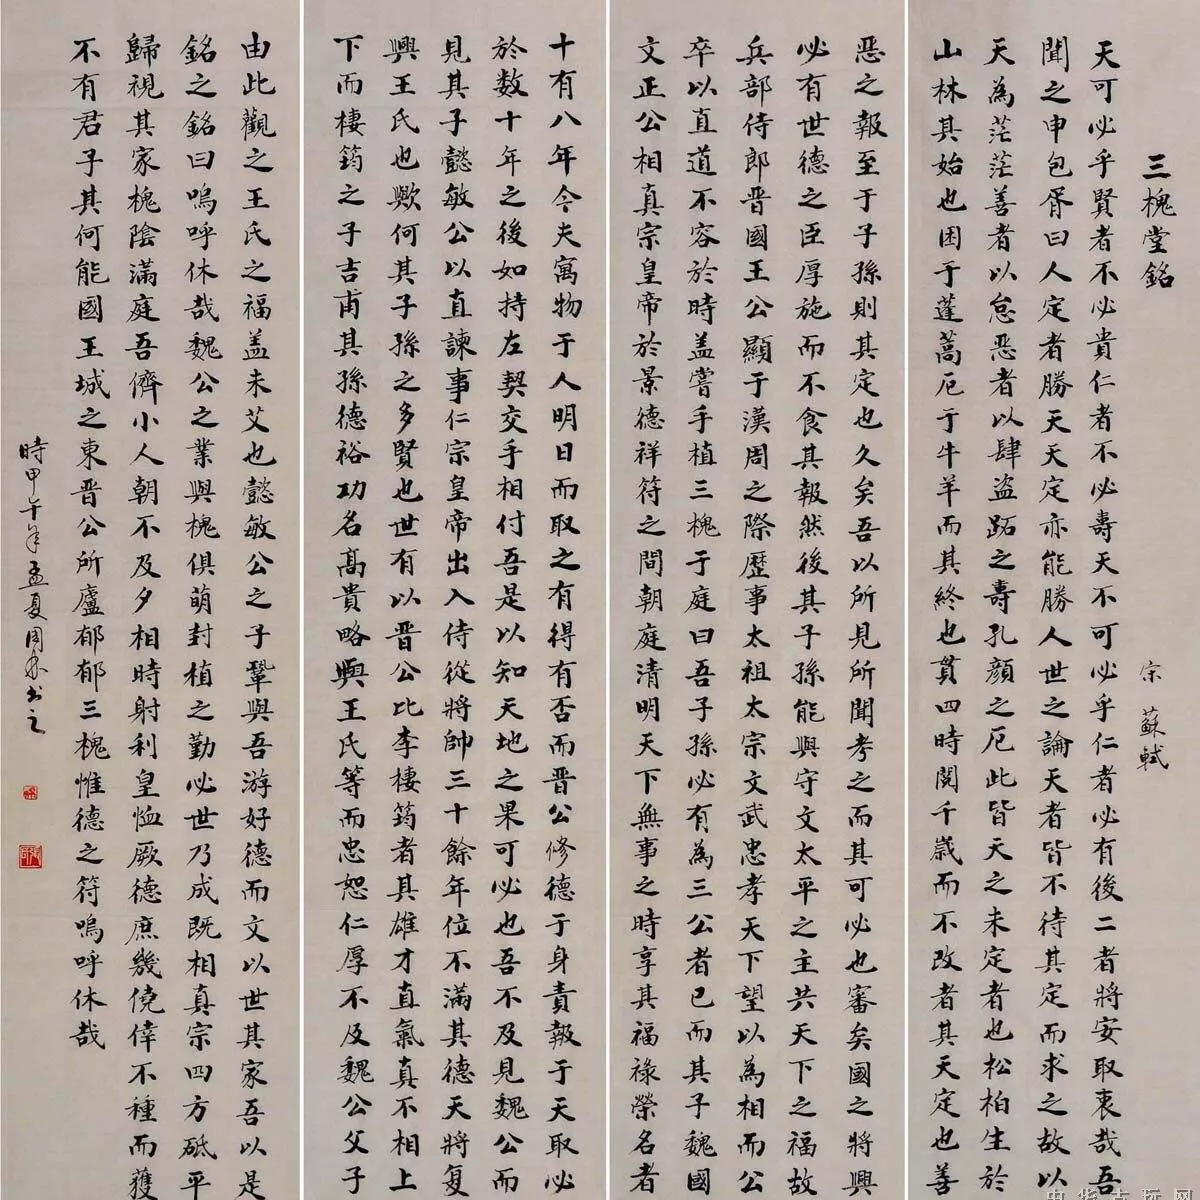 三槐堂銘
宗 蘇軾
天可必乎賢者不必貴仁者不必壽天不可必乎仁者必有後二者將安取衷哉吾
聞之申包胥曰人定者勝天天定亦能勝人世之論天者皆不待其定而求之故以
天為茫茫善者以怠惡者以肆盜跖之壽孔顏之厄此皆天之未定者也松柏生於
山林其始也困于蓬蒿厄于牛羊而其終也貫四時閱千歲而不改者其天定也善
惡之報至于子孫則其定也久矣吾以所見所聞考之而其可必也審矣國之將興
必有世德之臣厚施而不食其報然後其子孫能與守文太平之主共天下之福故
兵部侍郎晉國王公顯于漢周之際歷事太祖太宗文武忠孝天下望以為相而公
卒以直道不容於時盖嘗手植三槐于庭曰吾子孫必有為三公者已而其子魏國
文正公相真宗皇帝於景德祥符之間朝庭清明天下無事之時享其福祿榮名者
十有八年今夫寓物于人明日而取之有得有否而晉公修德于身責報于天取必
於数十年之後如持左契交手相付吾是以知天地之果可必也吾不及見魏公而
見其子懿敏公以直諫事仁宗皇帝出入侍從將帥三十餘年位不滿其德天將复
興王氏也歟何其子孫之多賢也世有以晉公比李棲筠者其雄才直氣真不相上
下而棲筠之子吉甫其孫德裕功名高貴略與王氏等而忠恕仁厚不及魏公父子
由此觀之王氏之福盖未艾也懿敏公之子鞏與吾游好德而文以世其家吾以是
銘之銘曰嗚呼休哉魏公之業與槐俱萌封植之勤必世乃成既相真宗四方砥平
歸視其家槐陰滿庭吾儕小人朝不及夕相時射利皇恤厥德庶幾僥倖不種而獲
不有君子其何能國王城之東晉公所廬郁郁三槐惟德之符嗚呼休哉
時甲午年孟夏周書之